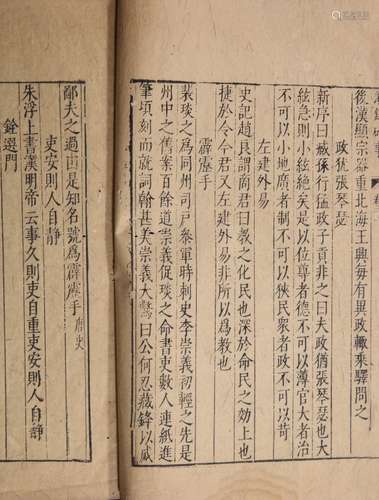 後漢顯宗器重北海王興每有異政輙乘驛問之
政猶張琴瑟
新序曰臧孫行猛政子貢非之曰夫政猶張琴瑟也大
絃急則小絃絶矣是以位尊者德不可以薄官大者治
不可以小地廣者制不可以狹民衆者政不可以苛
左建外易
史記趙良謂商君曰教之化民也深於命民之効上也
捷於令今君又左建外易非所以爲教也
霹靂手
裴琰之爲同州司戸叅軍時刺史李崇義初輕之先是
州中之舊案百餘道崇義促琰之命書吏數人連紙進
筆頃刻而就詞翰甚美崇義大驚曰公何忍藏鋒以成
鄙夫之過由是知名號爲霹靂手
吏安則人自静
朱浮上書漢明帝云事久則吏自重吏安則人自静
銓選門